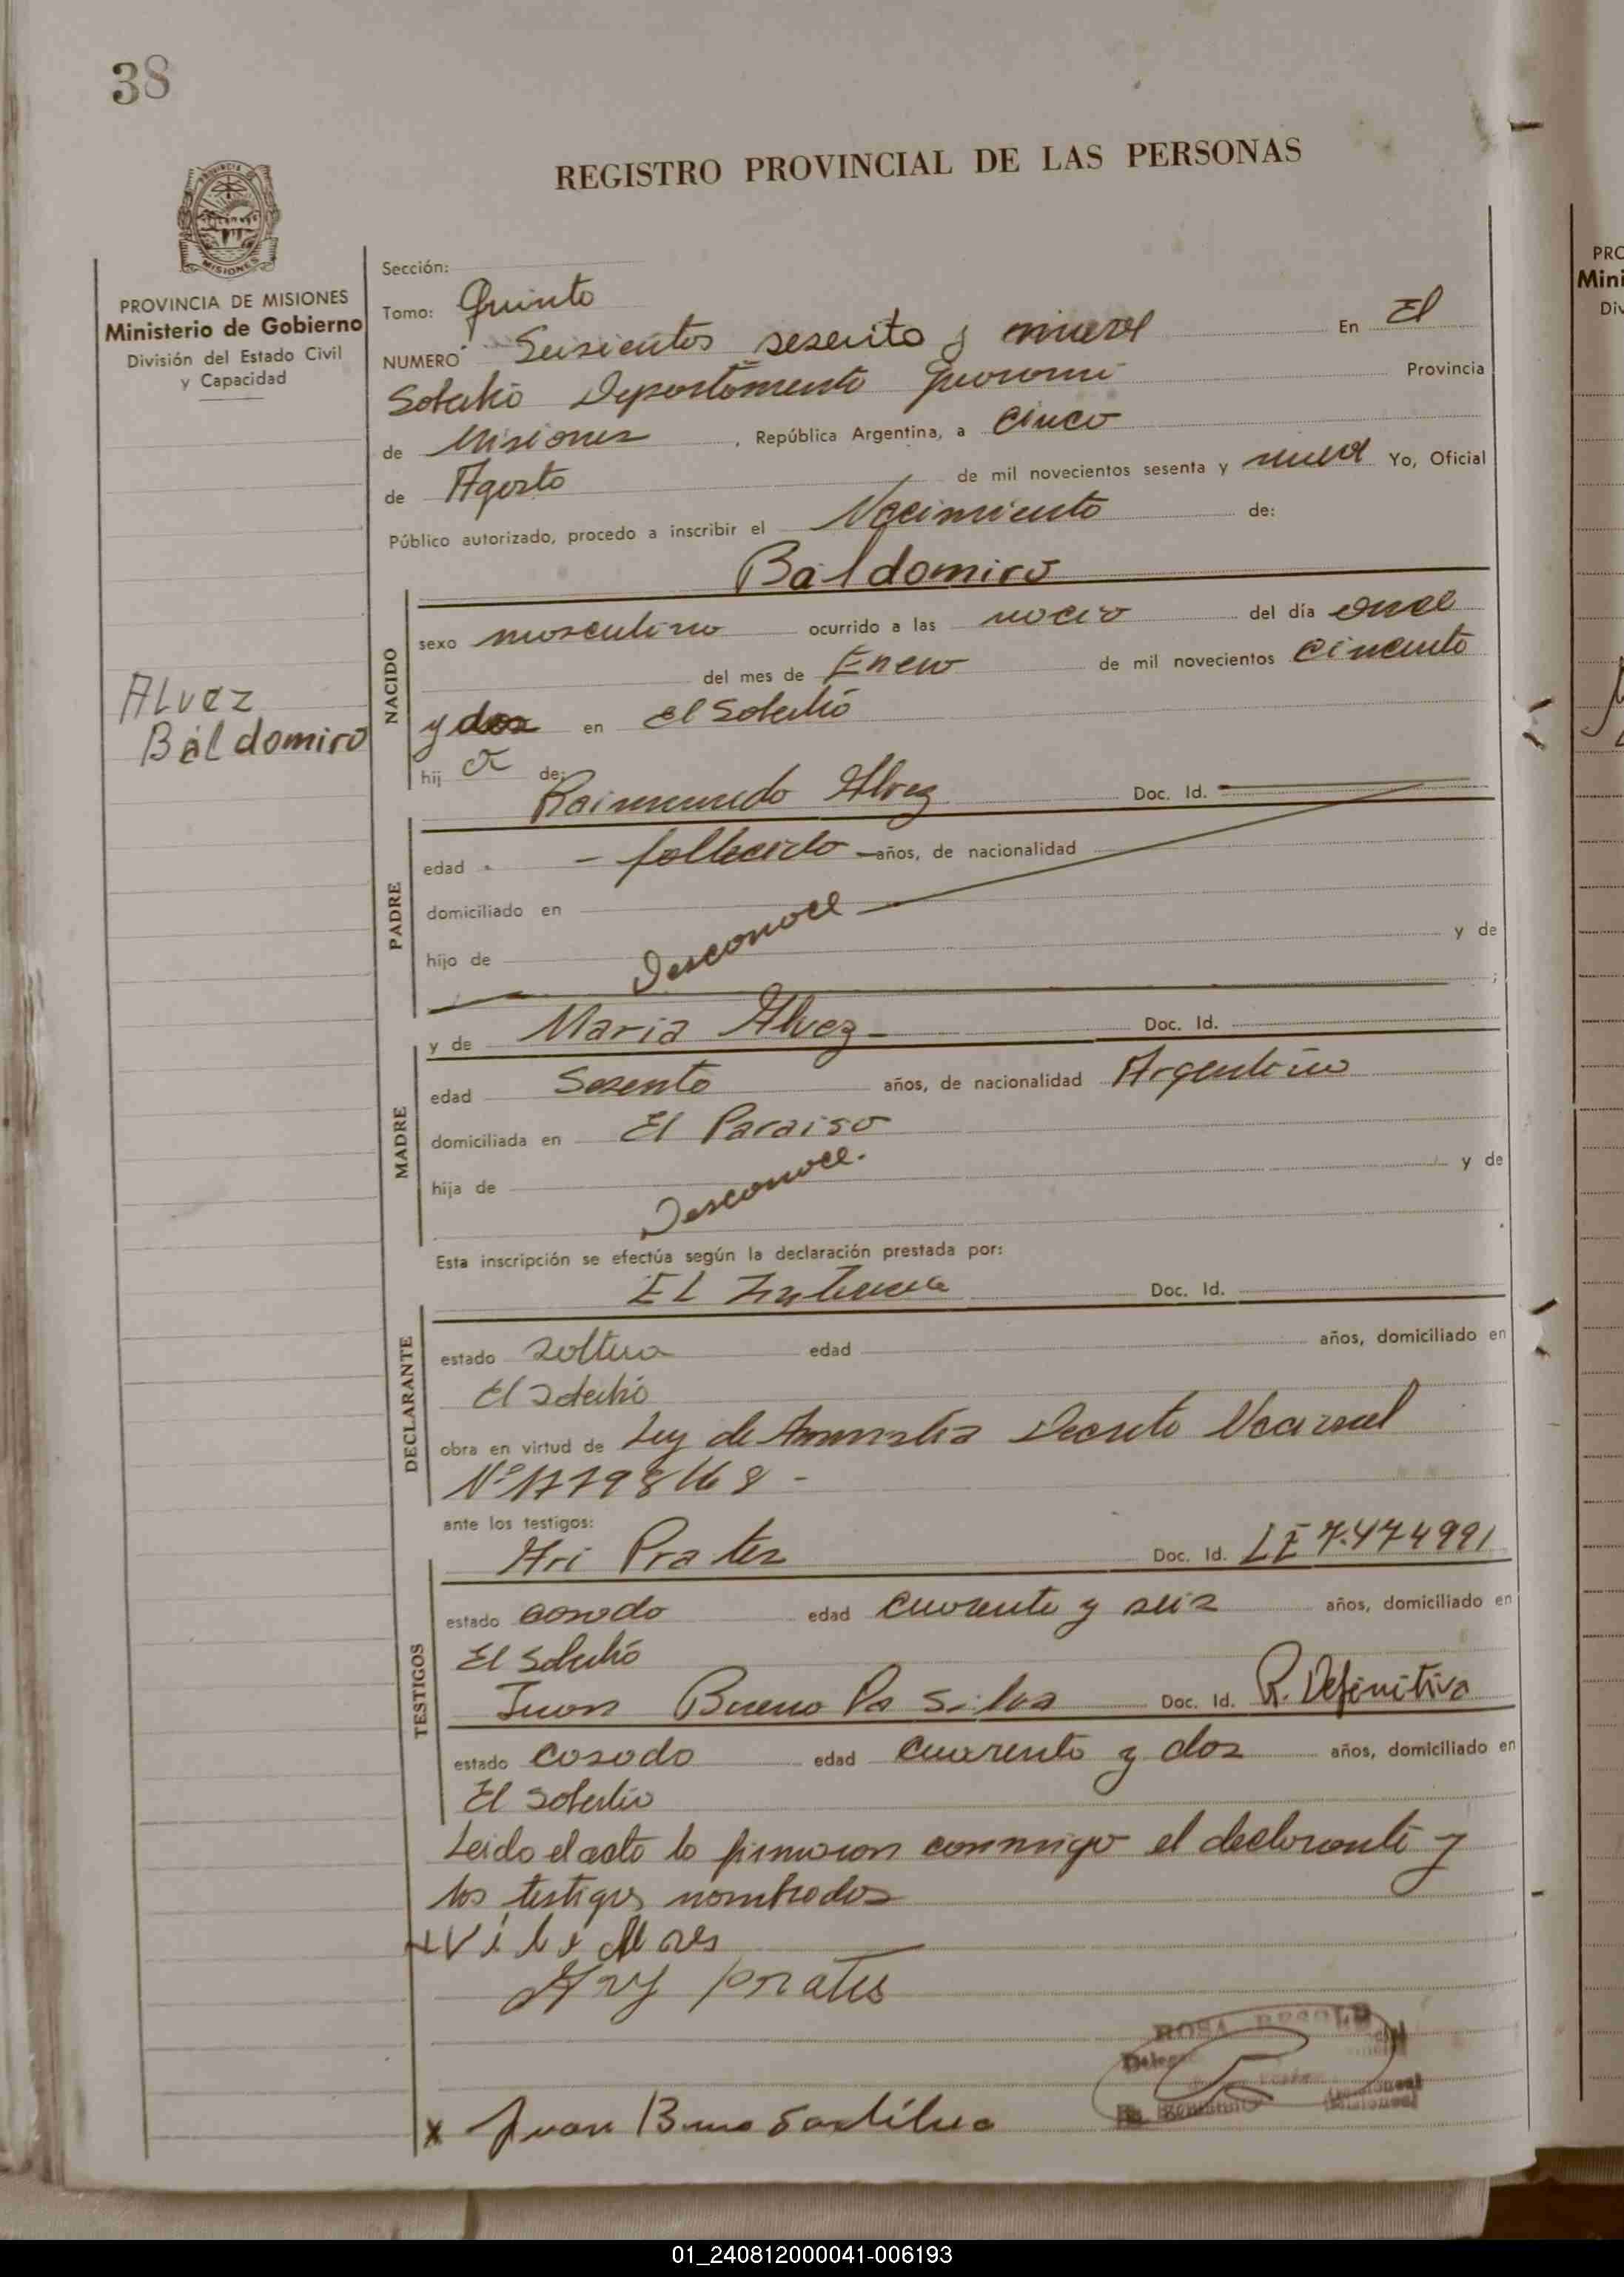 38
REGISTRO PROVINCIAL DE LAS PERSONAS
PROVINCIA DE MISIONES
Ministerio de Gobierno
División del Estado Civil
y Capacidad
Sección:
Tomo: Quinto
NUMERO Seisientos sesenta y nueve En El
Soberbio Departamento Guarani Provincia
de Misiones, República Argentina, a cinco
de Agosto de mil novecientos sesenta y nueve Yo, Oficial
Público autorizado, procedo a inscribir el Nacimiento de:
Baldomiro
NACIDO
sexo masculino ocurrido a las del día once
del mes de Enero de mil novecientos cincuenta
y dos en el Soberbió
hij o de:
Alvez
Baldomiro
PADRE
Raimundo Alvez Doc. Id.
edad - fallecido - años, de nacionalidad
domiciliado en
Desconoce
hijo de y de
MADRE
y de Maria Alvez - Doc. Id.
edad Sesenta años, de nacionalidad Argentina
domiciliada en El Paraiso
Desconoce.
hija de y de
Esta inscripción se efectúa según la declaración prestada por:
DECLARANTE
EL Doc. Id.
estado soltero edad años, domiciliado en
El Soberbió
obra en virtud de Ley de Amnistia Decreto Nacional
Nº 17798/68 -
ante los testigos:
TESTIGOS
Ari Prates Doc. Id. LE 7.474991
estado casado edad cuarenta y seis años, domiciliado en
El Soberbió
Juan Bueno Da Silva Doc. Id. R. Definitiva
estado casado edad cuarenta y dos años, domiciliado en
El Soberbio
Leido el acta la firmaron conmigo el declarante y
los testigos nombrados
Ary prates
ROSA
x Juan
01_240812000041-006193